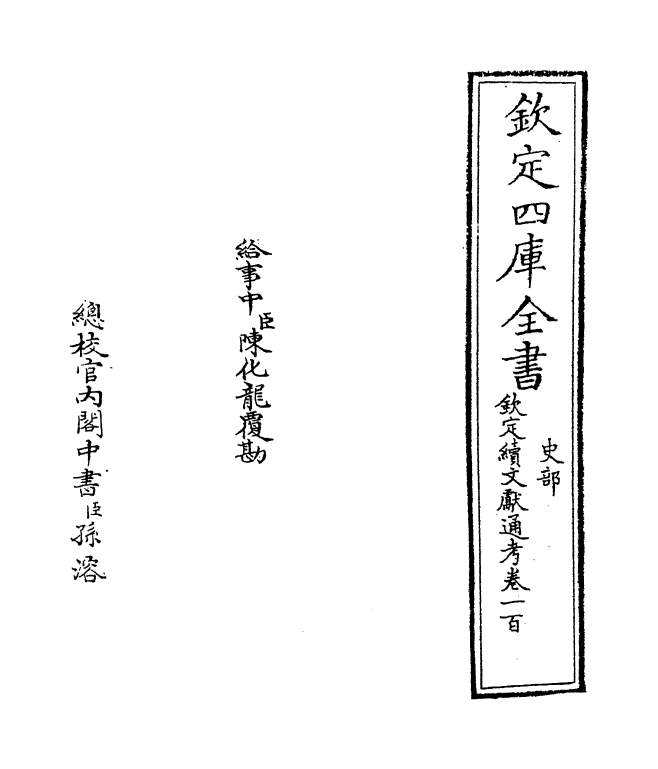 欽定四庫全書
史部
欽定續文獻通考卷一百
給事中臣陳化龍覆勘
總校官內閣中書臣孫溶